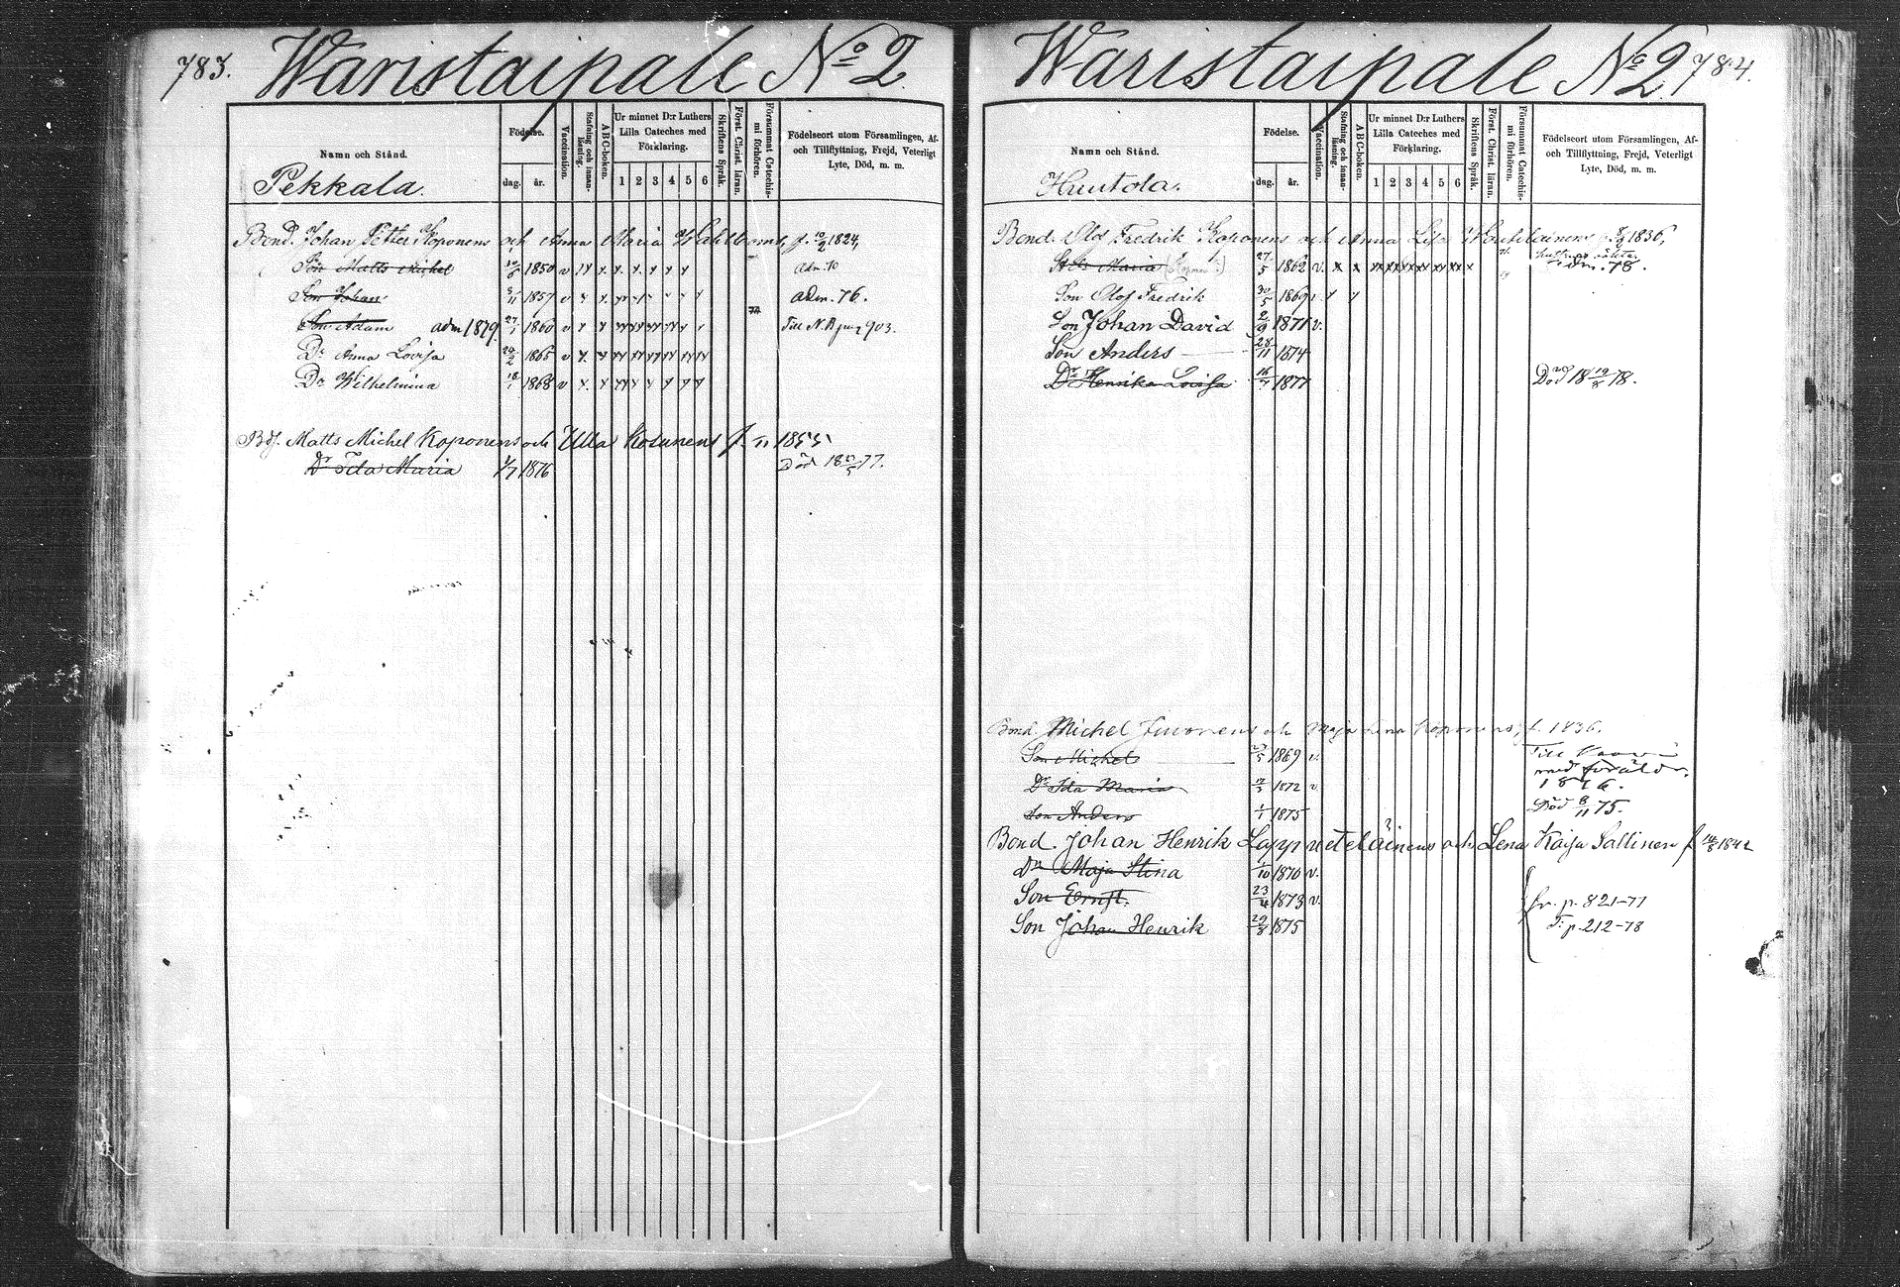 783. Waristaipale No 2.
Namn och Stånd.
Födelse.
dag. år.
Vaccination.
Stafning och innanläsning.
ABC-boken.
Ur minnet D:r Luthers Lilla Cateches med Förklaring.
1 2 3 4 5 6
Skriftens Språk.
Först. Christ. läran.
Försummat Catechismi förhören.
Födelseort utom Församlingen, Af- och Tillflyttning, Frejd, Veterligt Lyte, Död, m. m.
Pekkala.
Bond. Johan Petter Koponens och Anna Maria Wahlboms, f. 10/2 1824,
Son Matts Michel 1850 v
Son Johan 1857 v adm. 76.
Son Adam adm 1879. 27/1 1860 v Till N. B. pag 903.
Dr Anna Lovisa 24/2 1865 v
Dr Wilhelmina 18/1 1868 v
Bdj. Matts Michel Koponens och Ulla Kosunens f. 1855
Dr Ida Maria 1/7 1876 Död 77.
Waristaipale No 2. 784.
Namn och Stånd.
Födelse.
dag. år.
Vaccination.
Stafning och innanläsning.
ABC-boken.
Ur minnet D:r Luthers Lilla Cateches med Förklaring.
1 2 3 4 5 6
Skriftens Språk.
Först. Christ. läran.
Försummat Catechismi förhören.
Födelseort utom Församlingen, Af- och Tillflyttning, Frejd, Veterligt Lyte, Död, m. m.
Huutola.
Bond. Olof Fredrik Koponens och Anna Lisa 1836,
Maria 27/5 1862 v. adm. 78.
Son Olof Fredrik 30/5 1869 v.
Son Johan David 2/9 1871 v.
Son Anders 28/11 1874
Dr Henrika Lovisa 16/7 1877 Död 18 19/8 78.
Bond. Michel och Maja Lena Koponens, f. 1836.
Son Michel 1869 v. Till
Dr Ida Maria 1872 v. med föräldr. 1876.
Son Anders 1/1 1875 Död 8/11 75.
Bond. Johan Henrik Lappveteläinens och Lena Kaisa Sallinen f 14/8 1842
Dr Maja Stina 1/10 1870 v.
Son Ernst. 23/4 1873 v. fr. p. 821-77
Son Johan Henrik 29/8 1875 T: p. 212-78